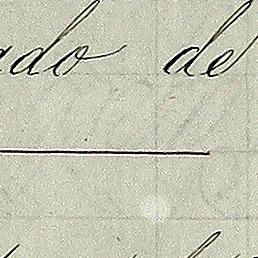 ado de